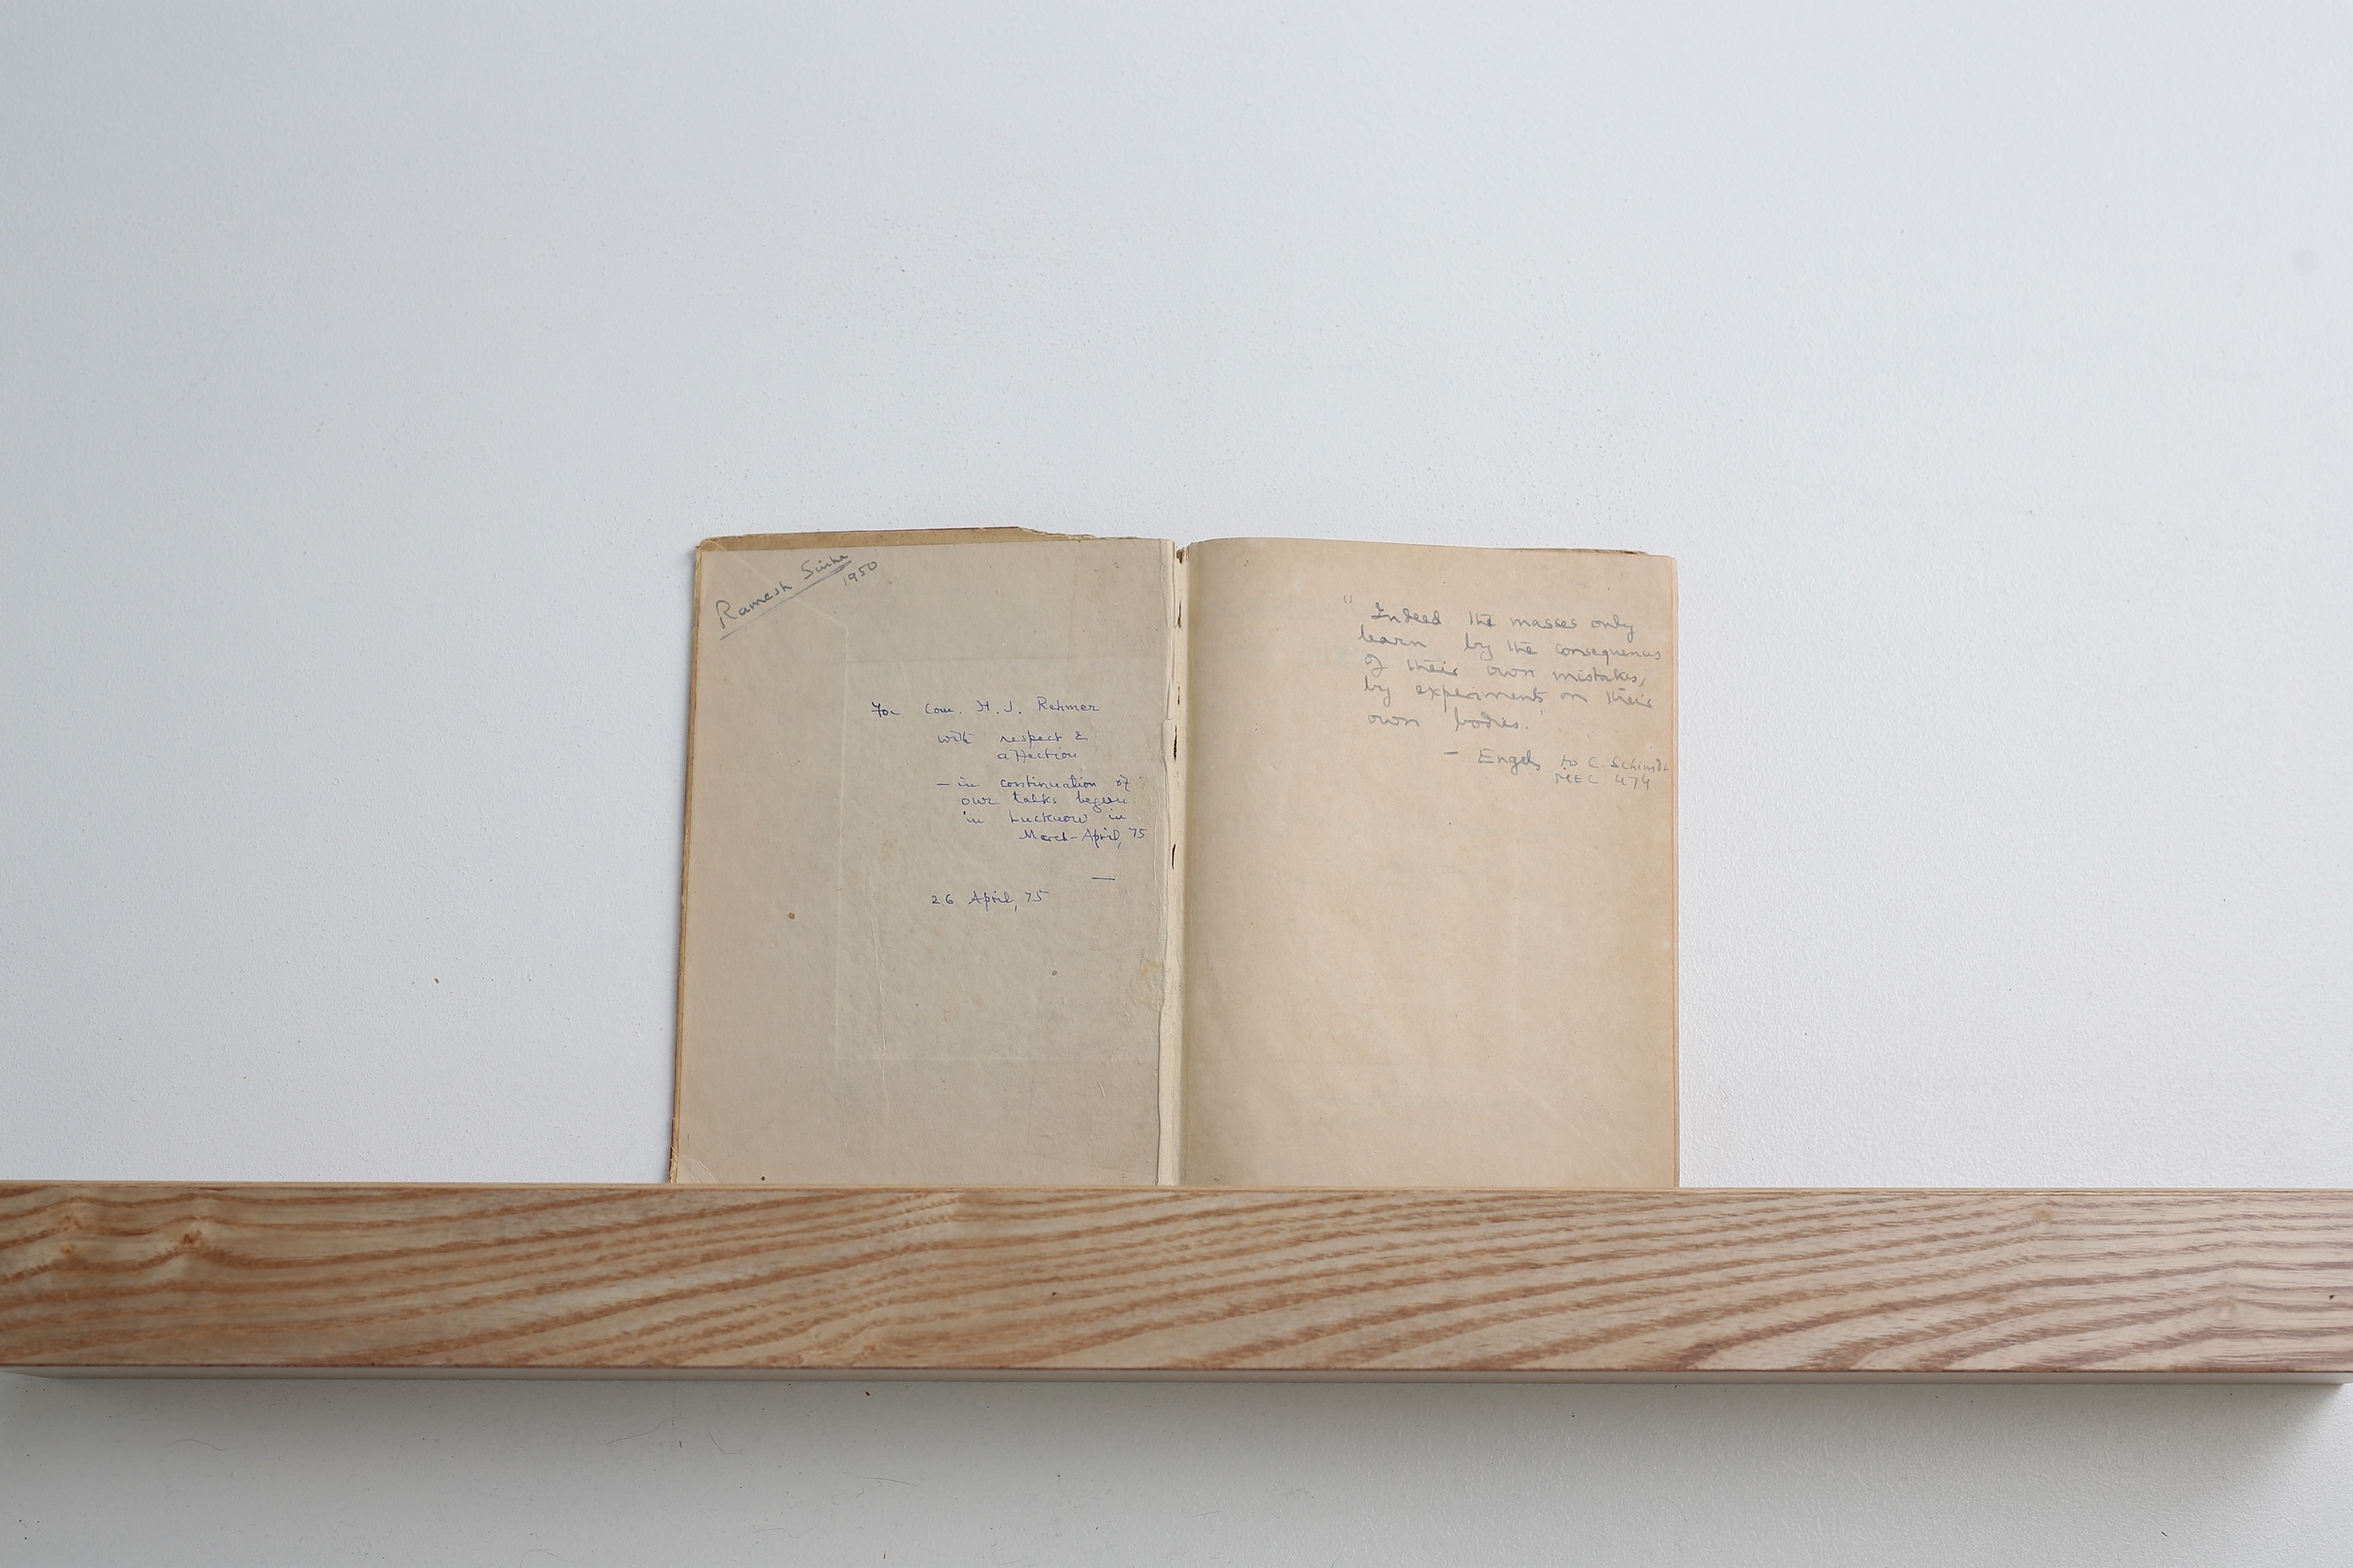 Ramesh Sinha
1950
For Com. H. J. Rehmer
with respect &
affection
— in continuation of
our talks begun
in Lucknow in
March-April, 75
—
26 April, 75
"Indeed the masses only
learn by the consequences
of their own mistakes,
by experiments on their
own bodies."
— Engels to C. Schimdt
MEC 474